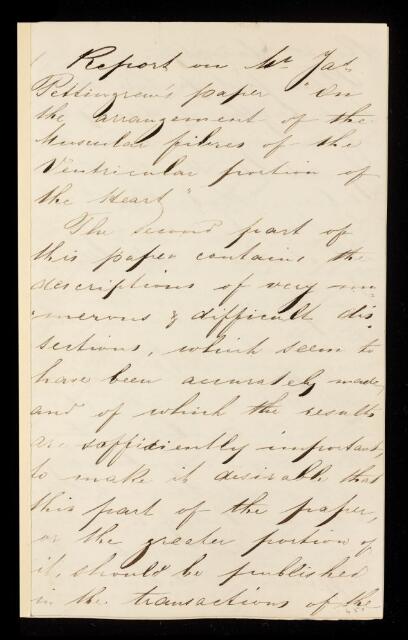 Report on Mr Jas
Pettingrew's paper "On
the arrangement of the
Muscular fibres of the
Ventricular portion of
the Heart"
The second part of
this paper contains the
descriptions of very nu-
-merous & difficult dis-
sections, which seem to
have been accurately made,
and of which the results
are sufficiently important,
to make it desirable that
this part of the paper,
or the greater portion of
it, should be published
in the transactions of the